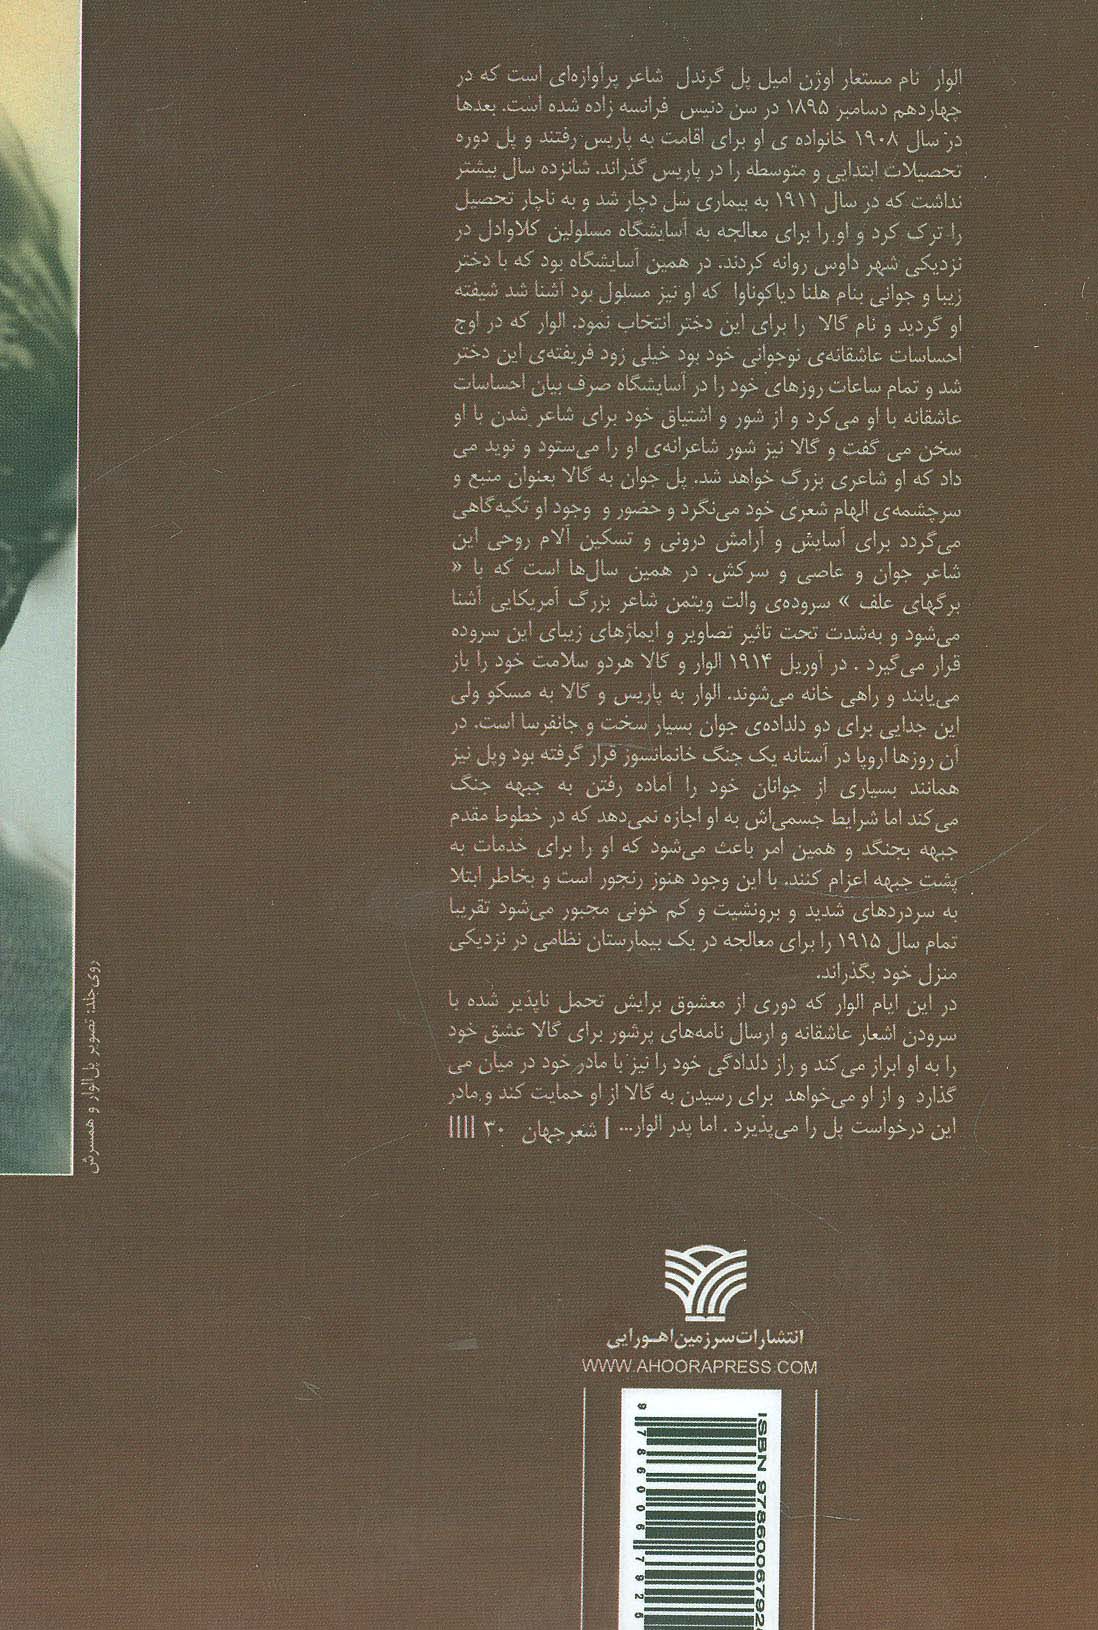 الوار نام مستعار اوژن امیل پل گرندل شاعر پرآوازه‌ای است که در
چهاردهم دسامبر ۱۸۹۵ در سن دنیس فرانسه زاده شده است. بعدها
در سال ۱۹۰۸ خانواده ی او برای اقامت به پاریس رفتند و پل دوره
تحصیلات ابتدایی و متوسطه را در پاریس گذراند. شانزده سال بیشتر
نداشت که در سال ۱۹۱۱ به بیماری سل دچار شد و به ناچار تحصیل
را ترک کرد و او را برای معالجه به آسایشگاه مسلولین کلاوادل در
نزدیکی شهر داوس روانه کردند. در همین آسایشگاه بود که با دختر
زیبا و جوانی بنام هلنا دیاکوناوا که او نیز مسلول بود آشنا شد شیفته
او گردید و نام گالا را برای این دختر انتخاب نمود. الوار که در اوج
احساسات عاشقانه‌ی نوجوانی خود بود خیلی زود فریفته‌ی این دختر
شد و تمام ساعات روزهای خود را در آسایشگاه صرف بیان احساسات
عاشقانه با او می‌کرد و از شور و اشتیاق خود برای شاعر شدن با او
سخن می گفت و گالا نیز شور شاعرانه‌ی او را می‌ستود و نوید می
داد که او شاعری بزرگ خواهد شد. پل جوان به گالا بعنوان منبع و
سرچشمه‌ی الهام شعری خود می‌نگرد و حضور و وجود او تکیه‌گاهی
می‌گردد برای آسایش و آرامش درونی و تسکین آلام روحی این
شاعر جوان و عاصی و سرکش. در همین سال‌ها است که با «
برگهای علف » سروده‌ی والت ویتمن شاعر بزرگ آمریکایی آشنا
می‌شود و به‌شدت تحت تاثیر تصاویر و ایماژهای زیبای این سروده
قرار می‌گیرد . در آوریل ۱۹۱۴ الوار و گالا هردو سلامت خود را باز
می‌یابند و راهی خانه می‌شوند. الوار به پاریس و گالا به مسکو ولی
این جدایی برای دو دلداده‌ی جوان بسیار سخت و جانفرسا است. در
آن روزها اروپا در آستانه یک جنگ خانمانسوز قرار گرفته بود وپل نیز
همانند بسیاری از جوانان خود را آماده رفتن به جبهه جنگ
می‌کند اما شرایط جسمی‌اش به او اجازه نمی‌دهد که در خطوط مقدم
جبهه بجنگد و همین امر باعث می‌شود که او را برای خدمات به
پشت جبهه اعزام کنند. با این وجود هنوز رنجور است و بخاطر ابتلا
به سردردهای شدید و برونشیت و کم خونی مجبور می‌شود تقریبا
تمام سال ۱۹۱۵ را برای معالجه در یک بیمارستان نظامی در نزدیکی
منزل خود بگذراند.
در این ایام الوار که دوری از معشوق برایش تحمل ناپذیر شده با
سرودن اشعار عاشقانه و ارسال نامه‌های پرشور برای گالا عشق خود
را به او ابراز می‌کند و راز دلدادگی خود را نیز با مادر خود در میان می
گذارد و از او می‌خواهد برای رسیدن به گالا از او حمایت کند و مادر
این درخواست پل را می‌پذیرد . اما پدر الوار... | شعرجهان ۳۰ ||||
روی جلد: تصویر پل الوار و همسرش
انتشارات سرزمین اهورایی
WWW.AHOORAPRESS.COM
ISBN 978600679
9 786006 7926